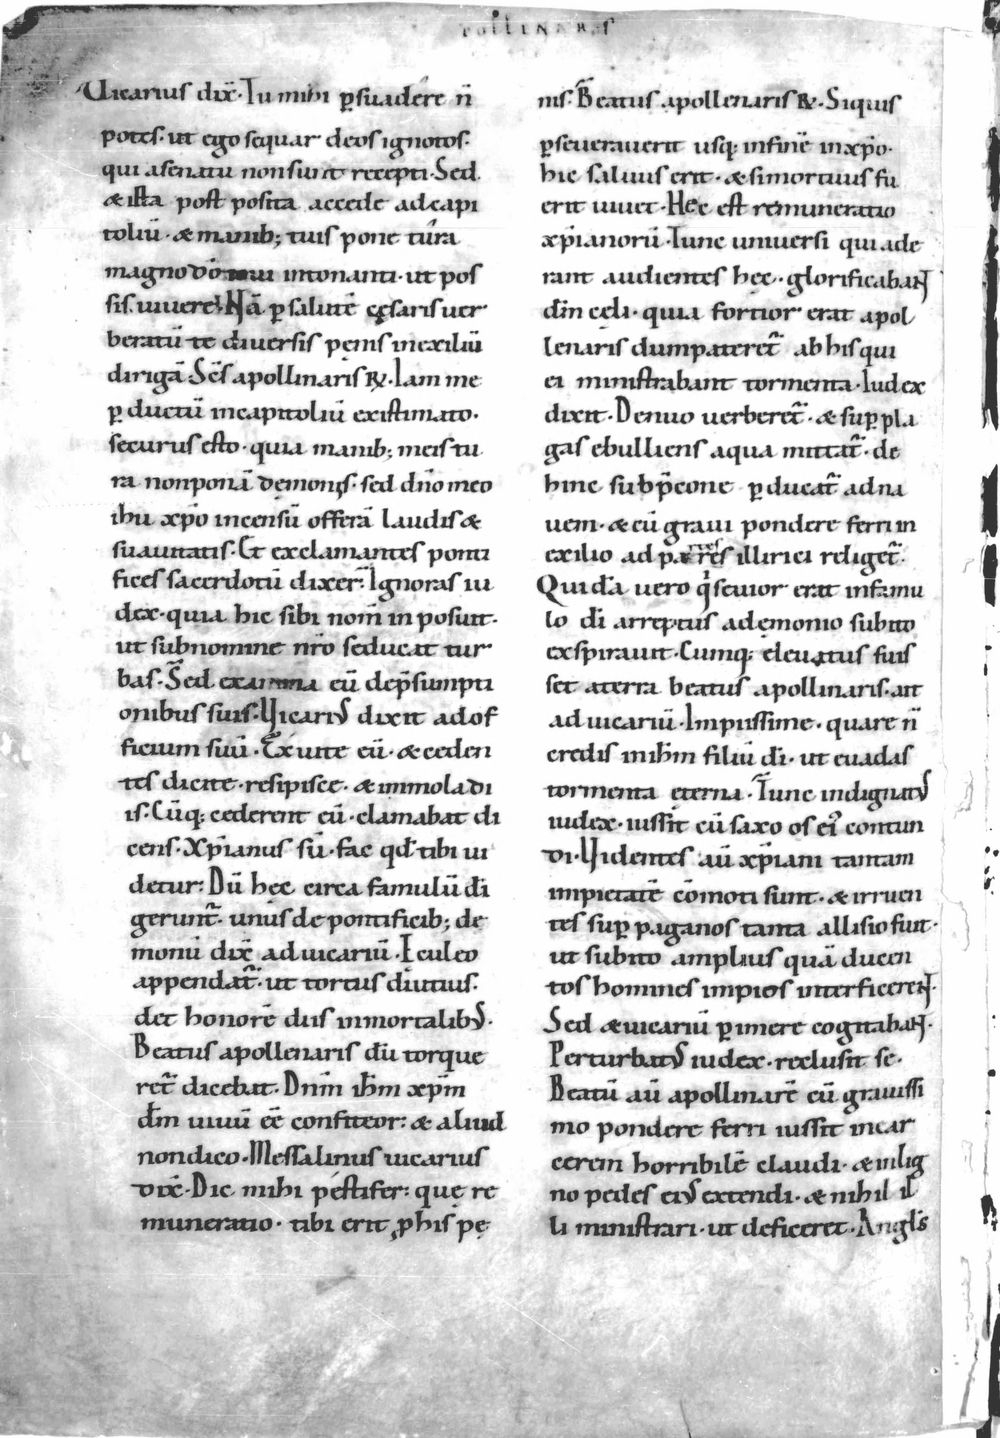 pollinaris
Uicarius dix̄. Tu mihi p̱suadere n̄
potes. ut ego sequar deos ignotos.
qui asenatu nonsunt recepti. Sed
& ista post posita accede adcapi
toliū. & manib; tuis pone tura
magno intonanti. ut pos
sis uiuere. Nā p̱ salutē cęsaris uer
beratū te diuersis penis inexiliū
dirigā. Sc̄s apollinaris R̷. Iam me
p̱ductū incapitoliū existimato.
securus esto. quia manib; meis tu
ra nonponā demonis. sed dn̄o meo
ihu xp̄o incensū offerā laudis &
suauitatis. Et exclamantes ponti
fices sacerdotū dixer̄. Ignoras iu
dex. quia hic sibi nom̄ in posuit.
ut subnomine nr̄o seducat tur
bas. Sed examina eū dep̄sumpti
onibus suis. Uicarius dixit adof
ficium suū. Exuite eū. & ceden
tes dicite. resipisce. & immola di
is. Cūq; cederent eū. clamabat di
cens. Xp̄ianus sū. fac qd̄ tibi ui
detur. Dū hęc circa famulū dī
gerunt̄. unus de pontificib; de
moniū dix̄ aduicariū. Eculeo
appendat̄. ut tortus diutius.
det honorē diis inmortalibus.
Beatus apollenaris dū torque
ret̄ dicebat. Dn̄m ih̄m xp̄m
dm̄ uiuū eē confiteor. & aliud
nondico. Messalinus uicarius
dix̄. Dic mihi pestifer. quę re
muneratio. tibi erit p̱ his pę
nis. Beatus apollenaris R̷. Siquis
p̱seuerauerit usq; infinē inxp̄o.
hic saluus erit. & simortuus fu
erit uiuet. Hęc est remuneratio
xp̄ianorū. Tunc uniuersi quiade
rant audientes hęc. glorificabant
dm̄ cęli. quia fortior erat apol
lenaris dumpateret̄ ab hisqui
ei ministrabant tormenta. Iudex
dixit. Denuo uerberet̄. & sup̱ pla
gas ebulliens aqua mittat̄. de
hinc subp̄cone p̱ducat̄ adna
uem. & cū graui pondere ferri in
exilio ad partes illirici rediget̄.
Quidā uero q̄ seuior erat infamu
lo dī arreptus ademonio subito
exspirauit. Cumq; eleuatus fuis
set aterra beatus apollinaris. ait
aduicariū. Impiissime. quare n̄
credis mihi in filiū dī. ut euadas
tormenta ęterna. Tunc indignatus
iudex. iussit eū saxo os eius contun
di. Uidentes aū xp̄iani tantam
impietatē cōmoti sunt. & irruen
tes sup̱ paganos tanta allisio fuit.
ut subito amplius quā ducen
tos homines impios interficerent.
Sed & uicariū p̱imere cogitabant.
Perturbatus iudex. reclusit se.
Beatū aū apollinarē cū grauissi
mo pondere ferri iussit incar
cerem horribilē claudi. & inlig
no pedes eius extendi. & nihil il
li ministrari. ut deficeret. Angl̄s